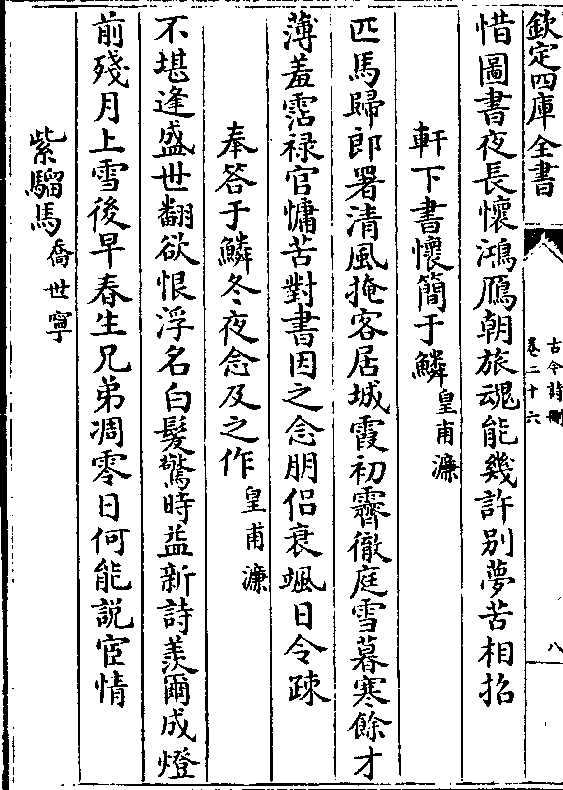 欽定四庫全書
古今詩刪
卷二十六
八
惜圖書夜長懷鴻鴈朝旅魂能幾許别夢苦相招
軒下書懷簡于鱗皇甫濂
匹馬歸郎署清風掩客居城霞初霽徹庭雪暮寒餘才
薄羞霑禄官慵苦對書因之念朋侣衰颯日令疎
奉答于鱗冬夜念及之作皇甫濂
不堪逢盛世翻欲恨浮名白髮驚時益新詩羨爾成燈
前殘月上雪後早春生兄弟凋零日何能説宦情
紫騮馬喬世寧